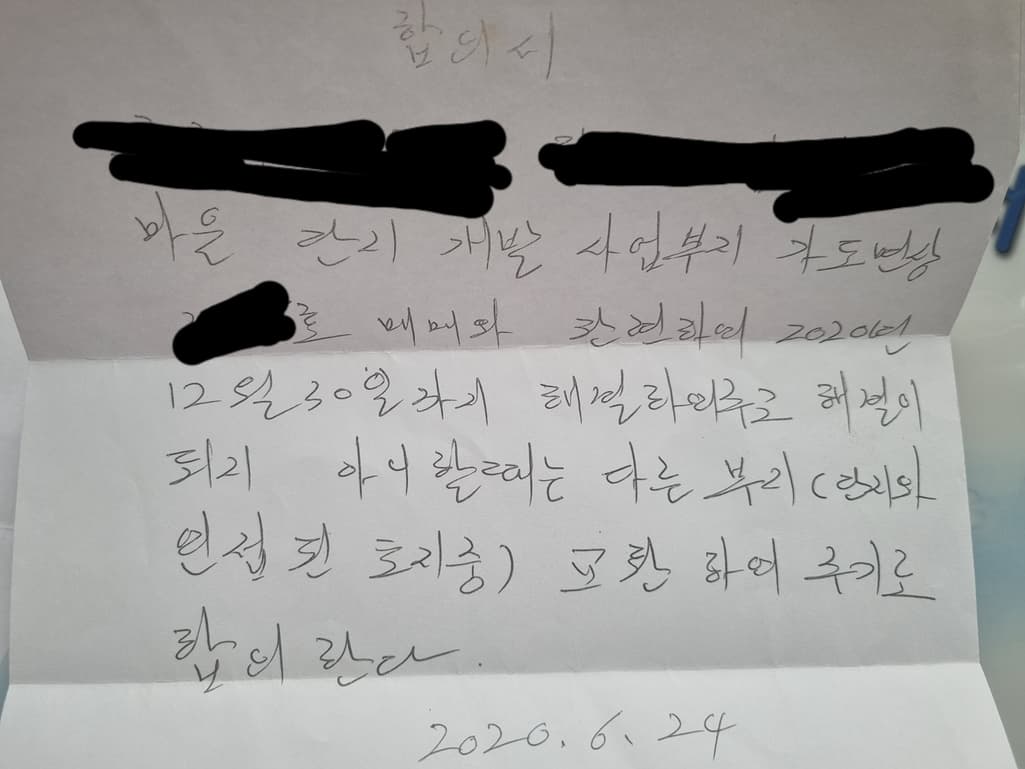 합의서
마을 단지 개발 사업부지 가도면상
로 매매와 관련하여 2020년
12월30일까지 해결하여주고 해결이
되지 아니할때는 다른 부지(단지와
인접된 토지중) 포함하여 주기로
합의한다.
2020. 6. 24